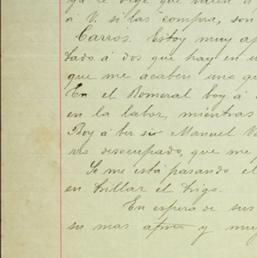 ya le dije que
á V. si las compra, son
Carros. Estoy muy ap
lado á dos que hay en u
que me acaben una qu
En el Romeral boy á
en la labor, mientras
Boy á ber si Manuel V
desocupado, que me p
Se me está pasando el
en trillar el trigo.
En espera de sus
su mas y muy